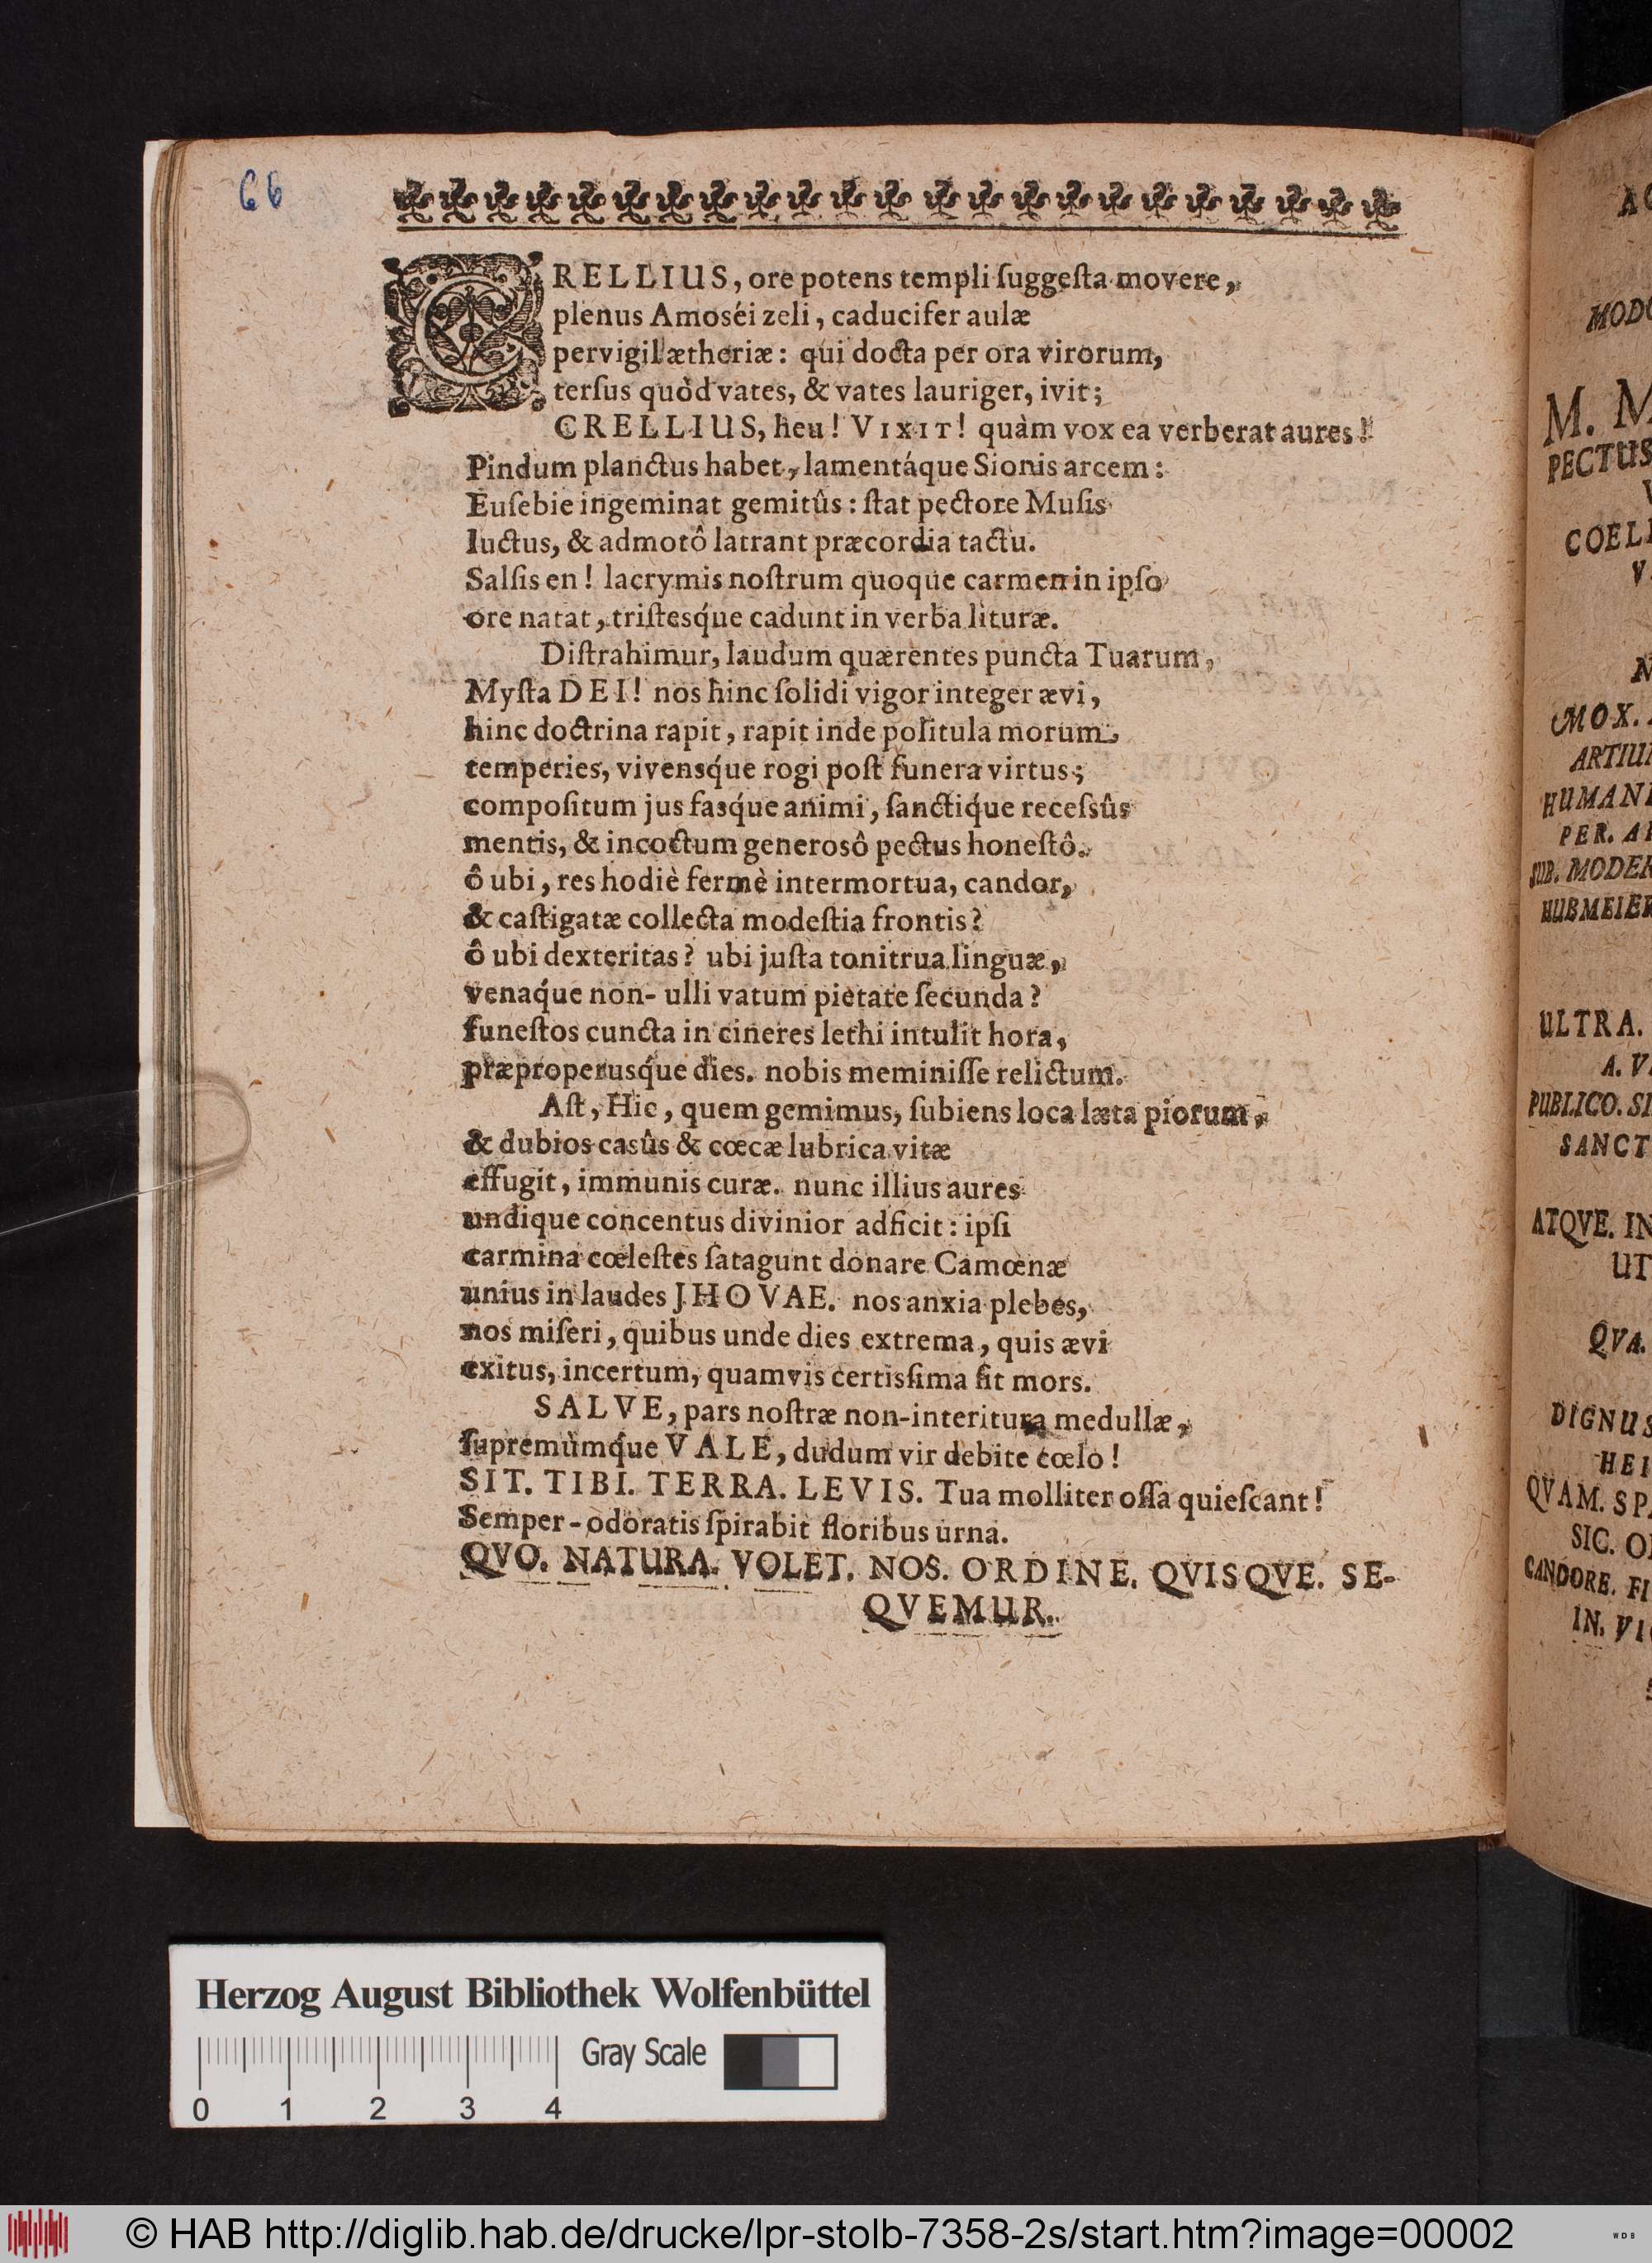 66
CRELLIUS, ore potens templi ſuggeſta movere,
plenus Amoséi zeli, caducifer aulæ
pervigil ætheriæ: qui docta per ora virorum,
terſus quòd vates, & vates lauriger, ivit;
CRELLIUS, heu! VIXIT! quàm vox ea verberat aures!
Pindum planctus habet, lamentáque Sionis arcem:
Euſebie ingeminat gemitûs: ſtat pectore Muſis
luctus, & admotô latrant præcordia tactu.
Salſis en! lacrymis noſtrum quoque carmen in ipſo
ore natat, triſtesq́ue cadunt in verba lituræ.
Diſtrahimur, laudum quærentes puncta Tuarum,
Myſta DEI! nos hinc ſolidi vigor integer ævi,
hinc doctrina rapit, rapit inde politula morum
temperies, vivensq́ue rogi poſt funera virtus;
compoſitum jus fasq́ue animi, ſanctiq́ue receſsûs
mentis, & incoctum generosô pectus honeſtô.
ô ubi, res hodiè fermè intermortua, candor,
& caſtigatæ collecta modeſtia frontis?
ô ubi dexteritas? ubi juſta tonitrua linguæ,
venaq́ue non-ulli vatum pietate ſecunda?
funeſtos cuncta in cineres lethi intulit hora,
præproperusq́ue dies. nobis meminiſſe relictum.
Aſt, Hic, quem gemimus, ſubiens loca læta piorum,
& dubios casûs & cœcæ lubrica vitæ
effugit, immunis curæ. nunc illius aures
undique concentus divinior adficit: ipſi
carmina cœleſtes ſatagunt donare Camœnæ
unius in laudes JHOVAE. nos anxia plebes,
nos miſeri, quibus unde dies extrema, quis ævi
exitus, incertum, quamvis certisſima ſit mors.
SALVE, pars noſtræ non-interitura medullæ,
ſupremùmq́ue VALE, dudum vir debite cœlo!
SIT. TIBI. TERRA. LEVIS. Tua molliter oſſa quieſcant!
Semper-odoratis ſpirabit floribus urna.
QVO. NATURA. VOLET. NOS. ORDINE. QVISQVE. SE-
QVEMUR.
MODO
M. M
PECTUS
COEL
V
MOX.
ARTIU
HUMANI
PER. A
SUB. MODER
HUBMEIER
ULTRA.
A. V
PUBLICO. SI
SANCT
ATQVE. IN
UT
QVA.
DIGNUS
HEI
QVAM. SPA
SIC. O
CANDORE. FI
IN. VI
Herzog August Bibliothek Wolfenbüttel
Gray Scale
0 1 2 3 4
© HAB http://diglib.hab.de/drucke/lpr-stolb-7358-2s/start.htm?image=00002
WDB